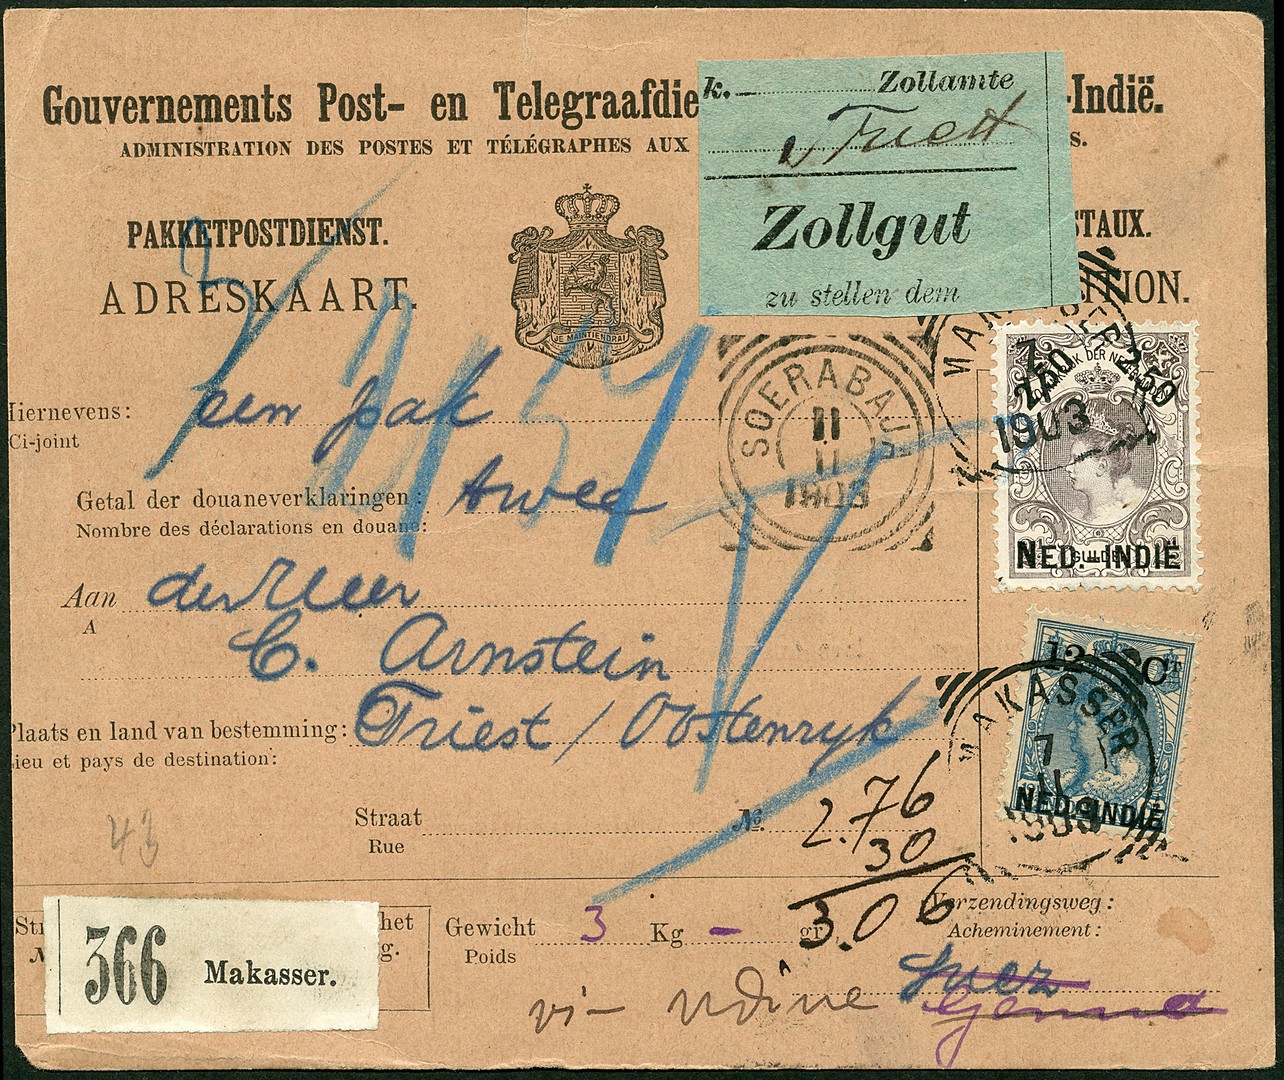 Gouvernements Post- en Telegraafdie
-Indië.
ADMINISTRATION DES POSTES ET TÉLÉGRAPHES AUX
S.
k. Zollamte
Triest
Zollgut
zu stellen dem
PAKKETPOSTDIENST.
STAUX.
ADRESKAART.
ITION.
JE MAINTIENDRAI
MAKASSER
7
11
1903
2.50 2.50
K DER NE
GULDEN
NED. INDIË
SOERABAJA
11
11
1903
Hiernevens: een pak
Ci-joint
Getal der douaneverklaringen: twee
Nombre des déclarations en douane:
Aan den Heer
A
C. Arnstein
12 C
NED. INDIË
MAKASSER
7
11
1903
Plaats en land van bestemming: Triest / Oostenryk
Lieu et pays de destination:
Straat No.
Rue
43
2.76
30
3.06
366 Makasser.
het
g.
Gewicht 3 Kg - gr.
Poids
Verzendingsweg:
Acheminement:
Suez
Genua
via Udine